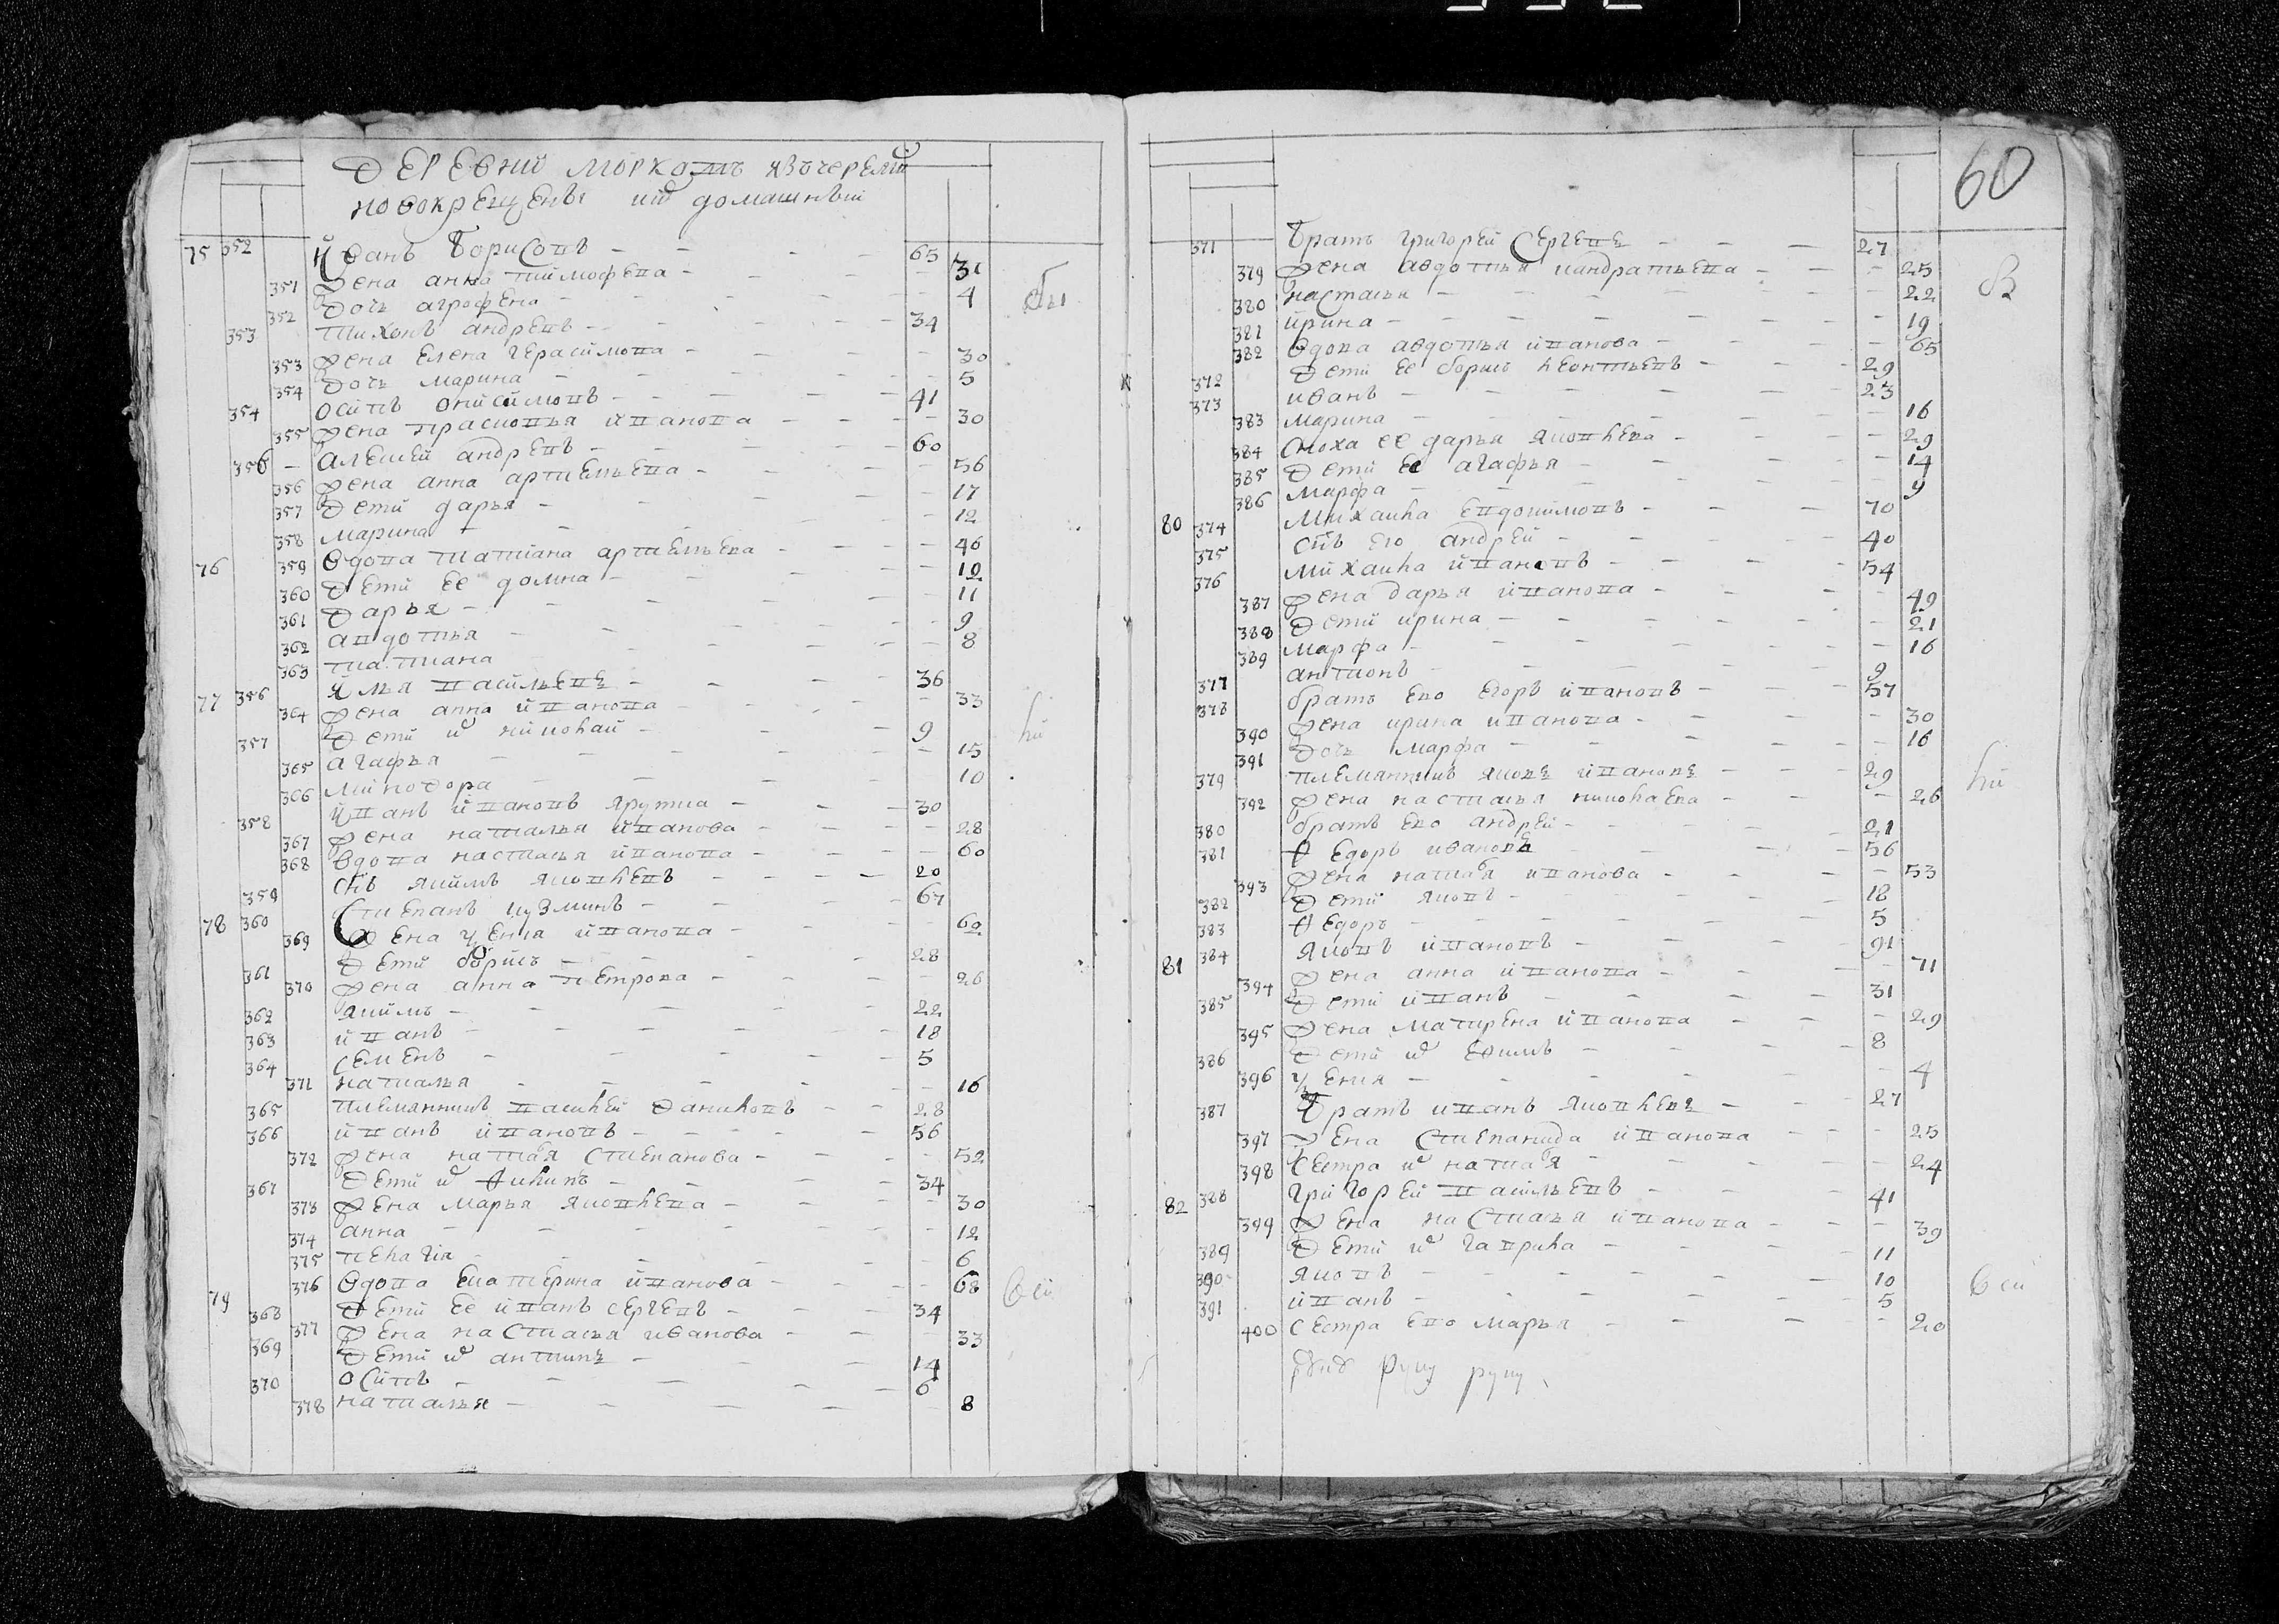 деревни моркошъ изъ черемисъ
новокрещены ихъ домашнъи
75 352 Иванъ Борисовъ 65
351 жена анна тимофева 31
352 дочь аграфена 4
353 Тихонъ андревъ 34
353 жена елена герасимова 30
354 дочь марина 5
354 осипъ онисимовъ 41
355 жена прасковья иванова 30
356 алексей андревъ 60
356 жена анна артемьева 56
357 дети дарья 17
358 марина 12
76 359 вдова татиана артемьева 46
360 дети ее домна 12
361 Дарья 11
362 авдотья 9
363 татиана 8
77 356 илья васильевъ 36
364 жена анна иванова 33
357 дети их николай 9
365 агафья 15
366 минодора 10
358 иванъ ивановъ 30
367 жена наталья иванова 28
368 вдова настасья иванова 60
359 снъ якимъ яковлевъ 20
78 360 Степанъ кузминъ 67
369 жена уения иванова 62
361 дети борисъ 28
370 жена анна петрова 26
362 якимъ 22
363 иванъ 18
364 семенъ 5
371 наталья 16
365 племянникъ василей даниловъ 28
366 иванъ ивановъ 56
372 жена наталя степанова 52
367 дети их филипъ 34
373 жена марья яковлева 30
374 анна 12
375 пелагия 6
79 376 вдова екатерина иванова 68
368 дети ее иванъ сергевъ 34
377 жена настасья иванова 33
369 дети их антипъ 14
370 осипъ 6
378 наталья 8
60
371 братъ григорей сергевъ 27
379 жена авдотья кандратьева 25
380 настасья 22
381 ирина 19
382 вдова авдотья иванова 65
372 дети ее борисъ леонтьевъ 29
373 иванъ 23
383 марина 16
384 сноха ее дарья яковлева 29
385 дети ее агафья 14
386 марфа 9
80 374 михаила евдокимовъ 70
375 снъ его андрей 40
376 михаила ивановъ 54
387 жена дарья иванова 49
388 дети ирина 21
389 марфа 16
377 антонъ 9
378 братъ ево егоръ ивановъ 57
390 жена ирина иванова 30
391 дочь марфа 16
379 племянникъ яковъ ивановъ 29
392 жена настасья николаева 26
380 братъ ево андрей 21
381 Ѳедоръ ивановъ 56
393 жена наталя иванова 53
382 дети яковъ 18
383 Ѳедоръ 5
81 384 яковъ ивановъ 91
394 жена анна иванова 71
385 дети иванъ 31
395 жена матрена иванова 29
386 дети их ефимъ 8
396 уения 4
387 братъ иванъ яковлевъ 27
397 жена степанида иванова 25
398 сестра их наталя 24
82 388 григорей васильевъ 41
399 жена настасья иванова 39
389 дети их гаврила 11
390 яковъ 10
391 иванъ 5
400 сестра ево марья 20
руку руку